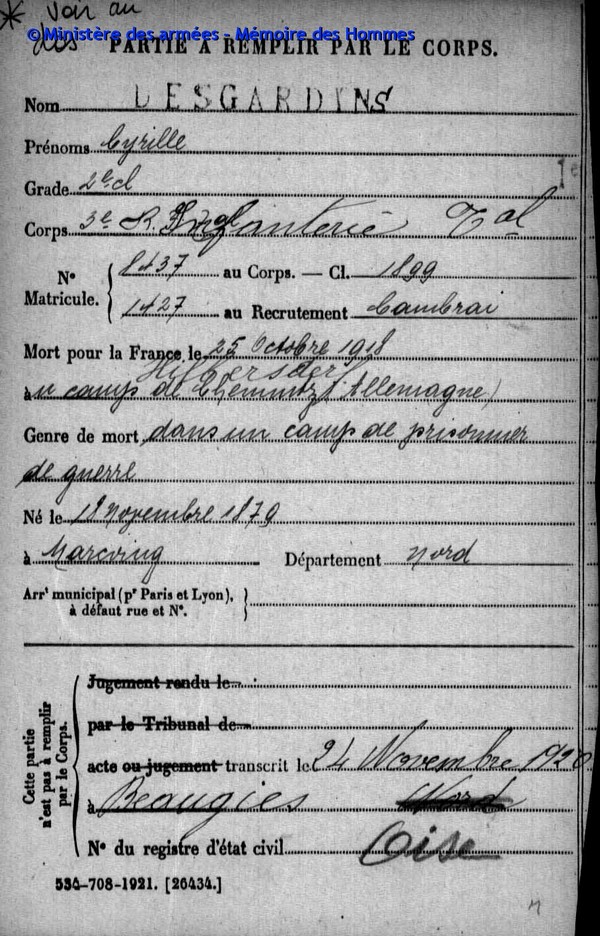 * Voir au
dos
© Ministère des armées - Mémoire des Hommes
PARTIE A REMPLIR PAR LE CORPS.
Nom DESGARDINS
Prénoms Cyrille
Grade 2e cl
Corps 3e R. d'Infanterie Tal
N° Matricule. 8437 au Corps. — Cl. 1899
1427 au Recrutement Cambrai
Mort pour la France le 25 Octobre 1918
Hilbersdorf
au camp de Chemnitz (Allemagne)
Genre de mort dans un camp de prisonnier
de guerre
Né le 18 Novembre 1879
à Marcoing Département Nord
Arrt municipal (pr Paris et Lyon),
à défaut rue et N°.
Cette partie n'est pas à remplir par le Corps.
Jugement rendu le
par le Tribunal de
acte ou jugement transcrit le 24 Novembre 1920
à Beaugies Nord
N° du registre d'état civil Oise
534-708-1921. [26434.]